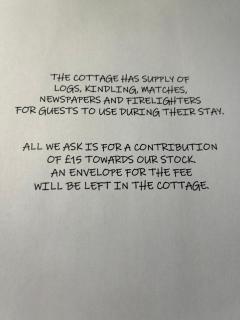 THE COTTAGE HAS SUPPLY OF
LOGS, KINDLING, MATCHES,
NEWSPAPERS AND FIRELIGHTERS
FOR GUESTS TO USE DURING THEIR STAY.
ALL WE ASK IS FOR A CONTRIBUTION
OF £15 TOWARDS OUR STOCK.
AN ENVELOPE FOR THE FEE
WILL BE LEFT IN THE COTTAGE.